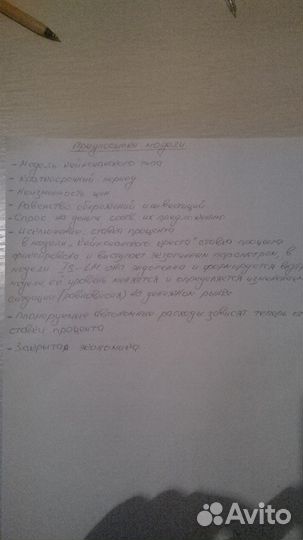 Предпосылки модели
- Модель кейнсианского типа
- Краткосрочный период
- Неизменность цен
- Равенство сбережений и инвестиций
- Спрос на деньги соотв. их предложению
- ставка процента
в модели „Кейнсианского креста" ставка процента
фиксирована и выступает внешним параметром, в
модели IS-LM она эндогенна и формируется внутри
модели её уровень меняется и определяется изменением
ситуации (равновесия) на денежном рынке
- Планируемые автономные расходы зависят теперь от
ставки процента
- Закрытая экономика
Avito